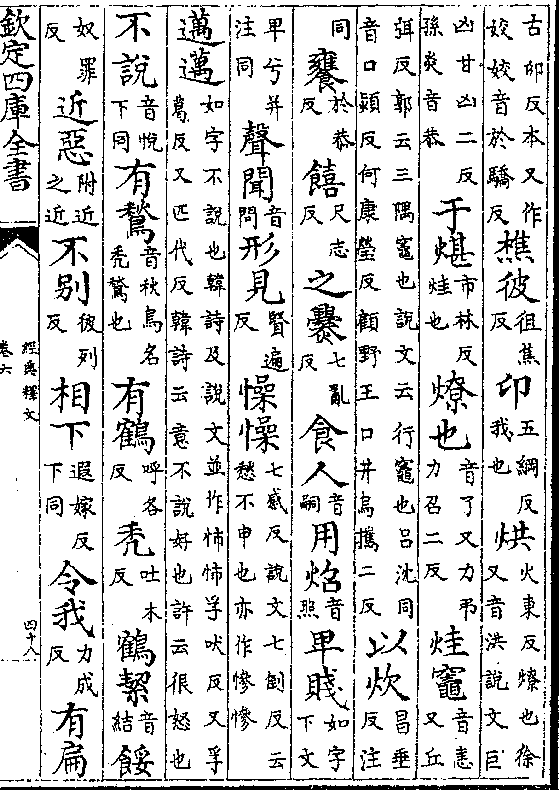 古卯反本又作姣姣音於驕反樵彼徂焦反卬五綱反我也烘火東反燎也徐又音洪說文巨
凶甘凶二反孫炎音恭于煁市林反烓也燎也音了又力弔力召二反烓竈音恚又丘
弭反郭云三隅竈也說文云行竈也呂沈同音口頴反何康瑩反顧野王口井烏攜二反以炊昌垂反注
同饔於恭反饎尺志反之爨七亂反食人音嗣用炤音照卑賤如字下文
卑兮并注同聲聞音問形見賢遍反懆懆七感反說文七倒反云愁不申也亦作慘慘
邁邁如字不說也韓詩及說文並作怖怖孚吠反又孚葛反又匹代反韓詩云意不說好也許云很怒也
不說音悅下同有鶖音秋鳥名秃鶖也有鶴呼各反秃吐木反鶴絜音結餒
奴罪反近惡附近之近不别彼列反相下遐嫁反下同令我力成反有扁
欽定四庫全書
經典釋文
卷六
四十八